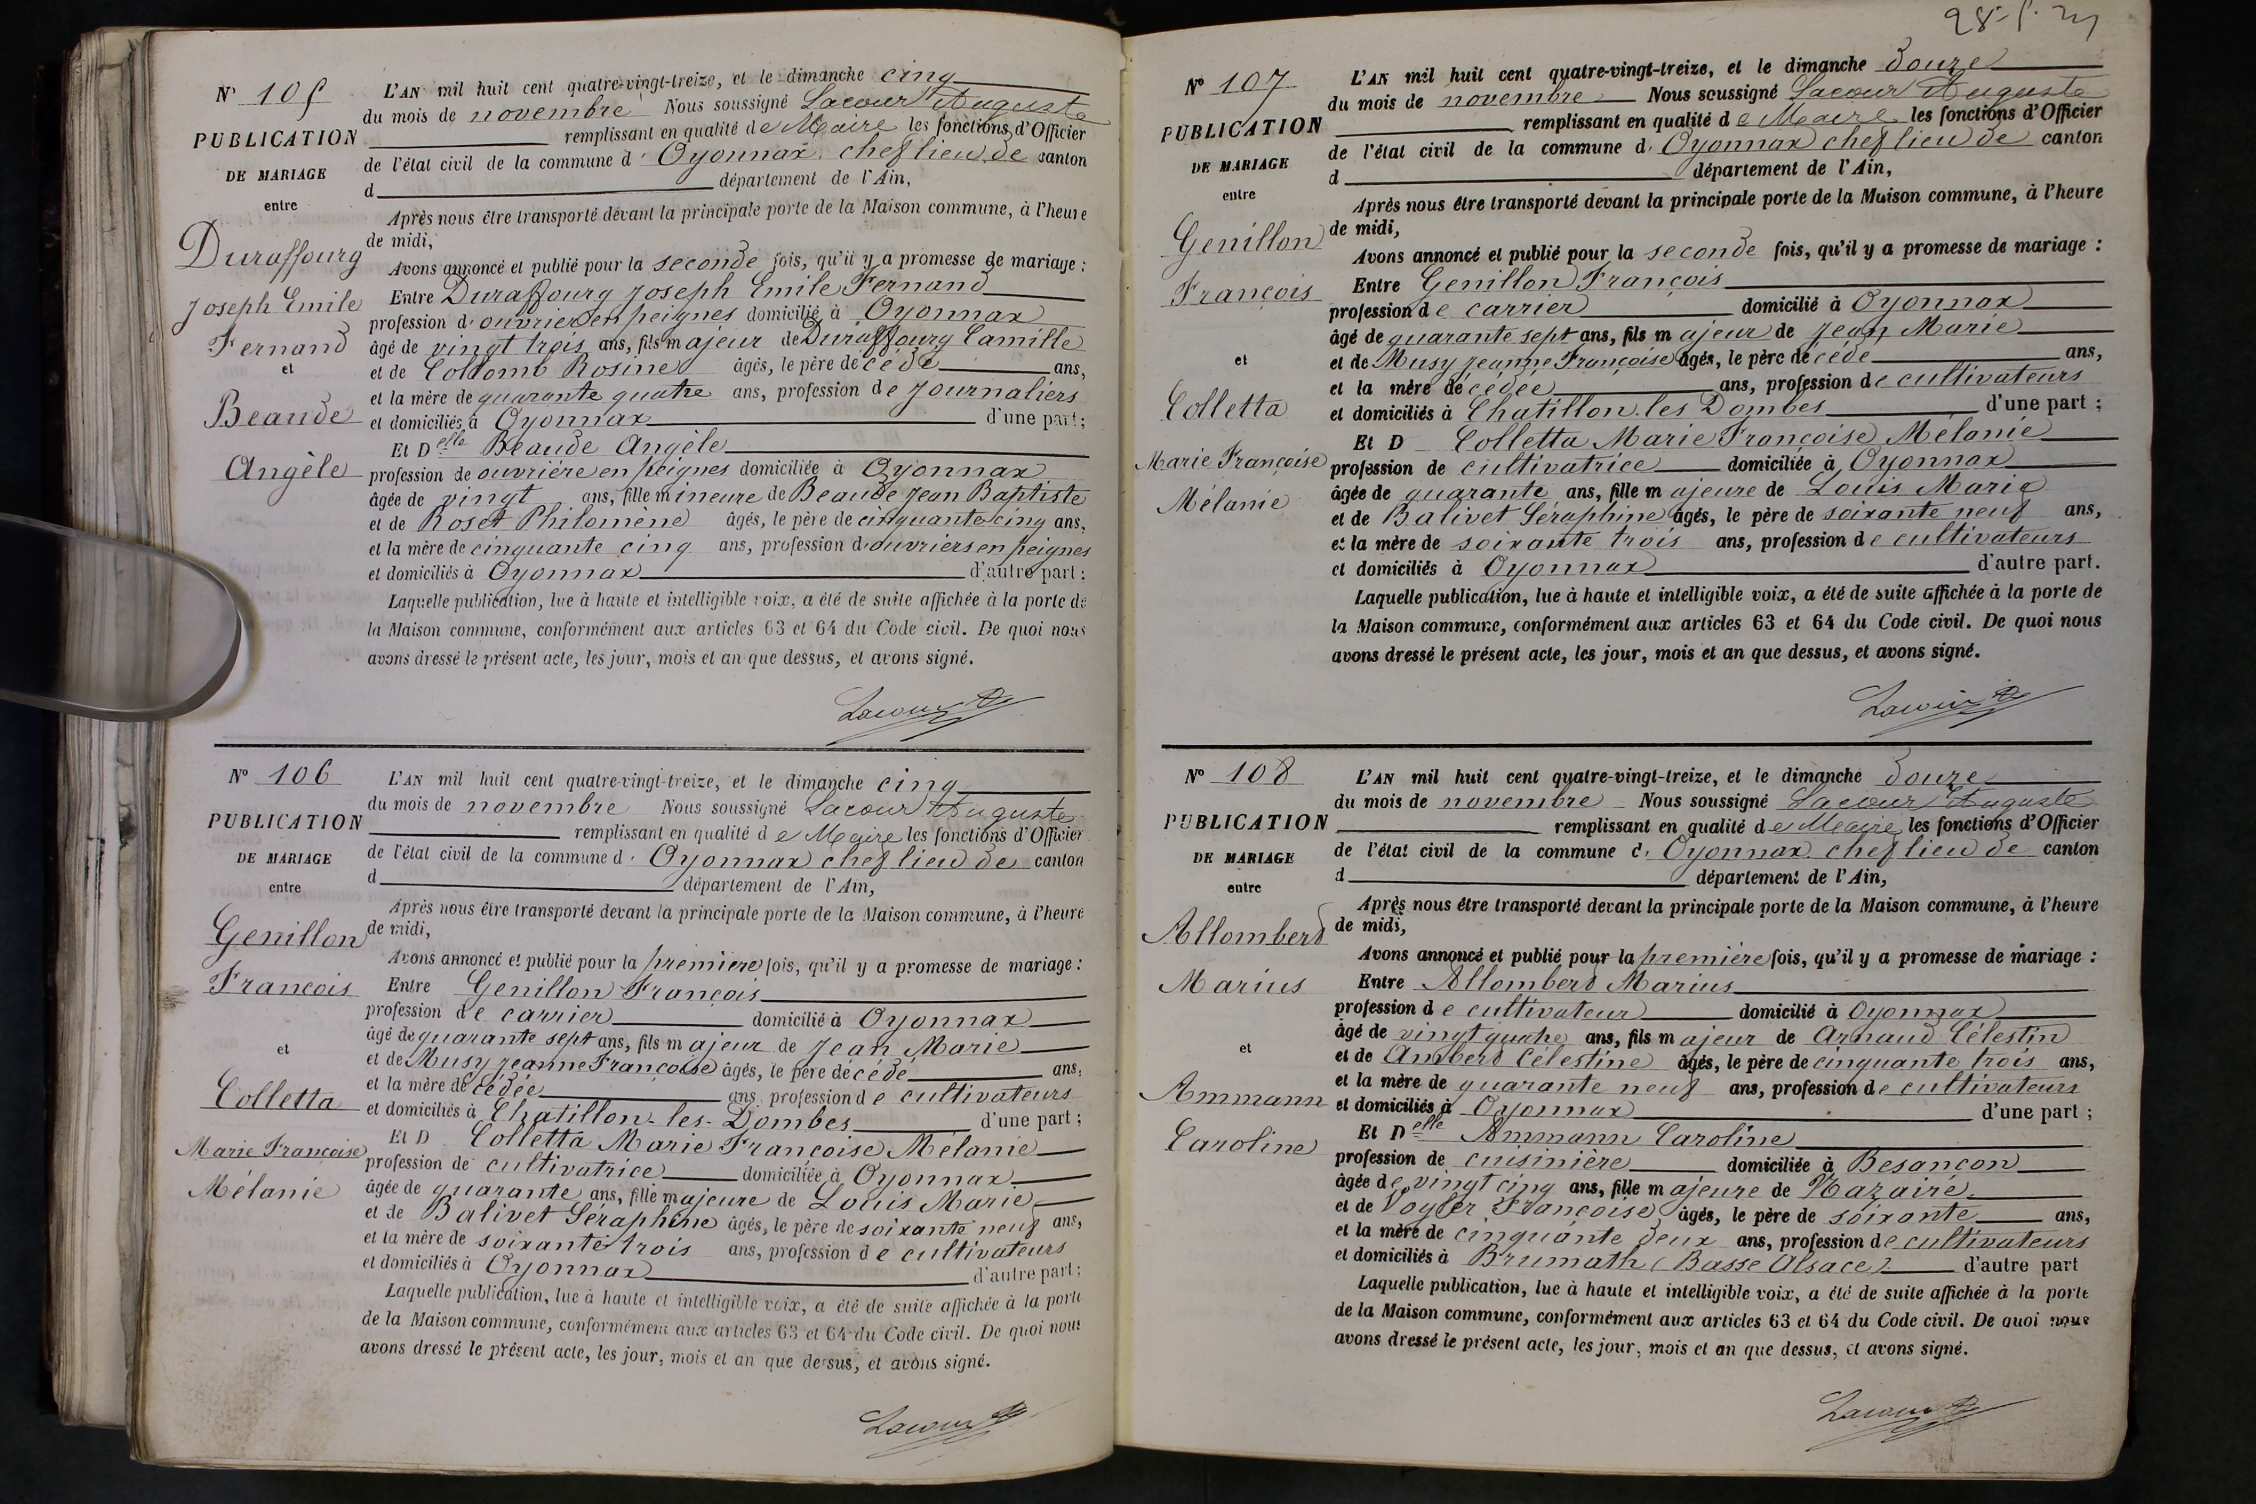 N° 105
PUBLICATION
DE MARIAGE
entre
Duraffourg
Joseph Emile
Fernand
et
Beaude
Angèle
L'AN mil huit cent quatre-vingt-treize, et le dimanche cinq
du mois de novembre Nous soussigné Lacour Auguste
remplissant en qualité de Maire les fonctions d'Officier
de l'état civil de la commune d'Oyonnax chef lieu de canton
d département de l'Ain,
Après nous être transporté devant la principale porte de la Maison commune, à l'heure
de midi,
Avons annoncé et publié pour la seconde fois, qu'il y a promesse de mariage :
Entre Duraffourg Joseph Emile Fernand
profession d'ouvrier en peignes domicilié à Oyonnax
âgé de vingt trois ans, fils majeur de Duraffourg Camille
et de Collomb Rosine âgés, le père décédé ans,
et la mère de quarante quatre ans, profession de journaliers
et domiciliés à Oyonnax d'une part;
Et Delle Beaude Angèle
profession de ouvrière en peignes domiciliée à Oyonnax
âgée de vingt ans, fille mineure de Beaude Jean Baptiste
et de Roset Philomène âgés, le père de cinquante cinq ans,
et la mère de cinquante cinq ans, profession d'ouvriers en peignes
et domiciliés à Oyonnax d'autre part:
Laquelle publication, lue à haute et intelligible voix, a été de suite affichée à la porte de
la Maison commune, conformément aux articles 63 et 64 du Code civil. De quoi nous
avons dressé le présent acte, les jour, mois et an que dessus, et avons signé.
Lacour A
N° 106
PUBLICATION
DE MARIAGE
entre
Genillon
François
et
Colletta
Marie Françoise
Mélanie
L'AN mil huit cent quatre-vingt-treize, et le dimanche cinq
du mois de novembre Nous soussigné Lacour Auguste
remplissant en qualité de Maire les fonctions d'Officier
de l'état civil de la commune d'Oyonnax chef lieu de canton
d département de l'Ain,
Après nous être transporté devant la principale porte de la Maison commune, à l'heure
de midi,
Avons annoncé et publié pour la première fois, qu'il y a promesse de mariage :
Entre Genillon François
profession de carrier domicilié à Oyonnax
âgé de quarante sept ans, fils majeur de Jean Marie
et de Musy Jeanne Françoise âgés, le père décédé ans,
et la mère décédée ans, profession de cultivateurs
et domiciliés à Chatillon-les-Dombes d'une part;
Et D Colletta Marie Françoise Mélanie
profession de cultivatrice domiciliée à Oyonnax
âgée de quarante ans, fille majeure de Louis Marie
et de Balivet Séraphine âgés, le père de soixante neuf ans,
et la mère de soixante trois ans, profession de cultivateurs
et domiciliés à Oyonnax d'autre part:
Laquelle publication, lue à haute et intelligible voix, a été de suite affichée à la porte
de la Maison commune, conformément aux articles 63 et 64 du Code civil. De quoi nous
avons dressé le présent acte, les jour, mois et an que dessus, et avons signé.
Lacour A
N° 107
PUBLICATION
DE MARIAGE
entre
Genillon
François
et
Colletta
Marie Françoise
Mélanie
L'AN mil huit cent quatre-vingt-treize, et le dimanche douze
du mois de novembre Nous soussigné Lacour Auguste
remplissant en qualité de Maire les fonctions d'Officier
de l'état civil de la commune d'Oyonnax chef lieu de canton
d département de l'Ain,
Après nous être transporté devant la principale porte de la Maison commune, à l'heure
de midi,
Avons annoncé et publié pour la seconde fois, qu'il y a promesse de mariage :
Entre Genillon François
profession de carrier domicilié à Oyonnax
âgé de quarante sept ans, fils majeur de Jean Marie
et de Musy Jeanne Françoise âgés, le père décédé ans,
et la mère décédée ans, profession de cultivateurs
et domiciliés à Chatillon-les Dombes d'une part;
Et D Colletta Marie Françoise Mélanie
profession de cultivatrice domiciliée à Oyonnax
âgée de quarante ans, fille majeure de Louis Marie
et de Balivet Séraphine âgés, le père de soixante neuf ans,
et la mère de soixante trois ans, profession de cultivateurs
et domiciliés à Oyonnax d'autre part.
Laquelle publication, lue à haute et intelligible voix, a été de suite affichée à la porte de
la Maison commune, conformément aux articles 63 et 64 du Code civil. De quoi nous
avons dressé le présent acte, les jour, mois et an que dessus, et avons signé.
Lacour A
N° 108
PUBLICATION
DE MARIAGE
entre
Allomberd
Marius
et
Ammann
Caroline
L'AN mil huit cent quatre-vingt-treize, et le dimanche douze
du mois de novembre Nous soussigné Lacour Auguste
remplissant en qualité de Maire les fonctions d'Officier
de l'état civil de la commune d'Oyonnax chef lieu de canton
d département de l'Ain,
Après nous être transporté devant la principale porte de la Maison commune, à l'heure
de midi,
Avons annoncé et publié pour la première fois, qu'il y a promesse de mariage :
Entre Allomberd Marius
profession de cultivateur domicilié à Oyonnax
âgé de vingt quatre ans, fils majeur de Arnaud Célestin
et de Amberd Célestine âgés, le père de cinquante trois ans,
et la mère de quarante neuf ans, profession de cultivateurs
et domiciliés à Oyonnax d'une part ;
Et Delle Ammann Caroline
profession de cuisinière domiciliée à Besançon
âgée de vingt cinq ans, fille majeure de Nazaire
et de Vogler Françoise âgés, le père de soixante ans,
et la mère de cinquante deux ans, profession de cultivateurs
et domiciliés à Brumath (Basse Alsace) d'autre part
Laquelle publication, lue à haute et intelligible voix, a été de suite affichée à la porte
de la Maison commune, conformément aux articles 63 et 64 du Code civil. De quoi nous
avons dressé le présent acte, les jour, mois et an que dessus, et avons signé.
Lacour A